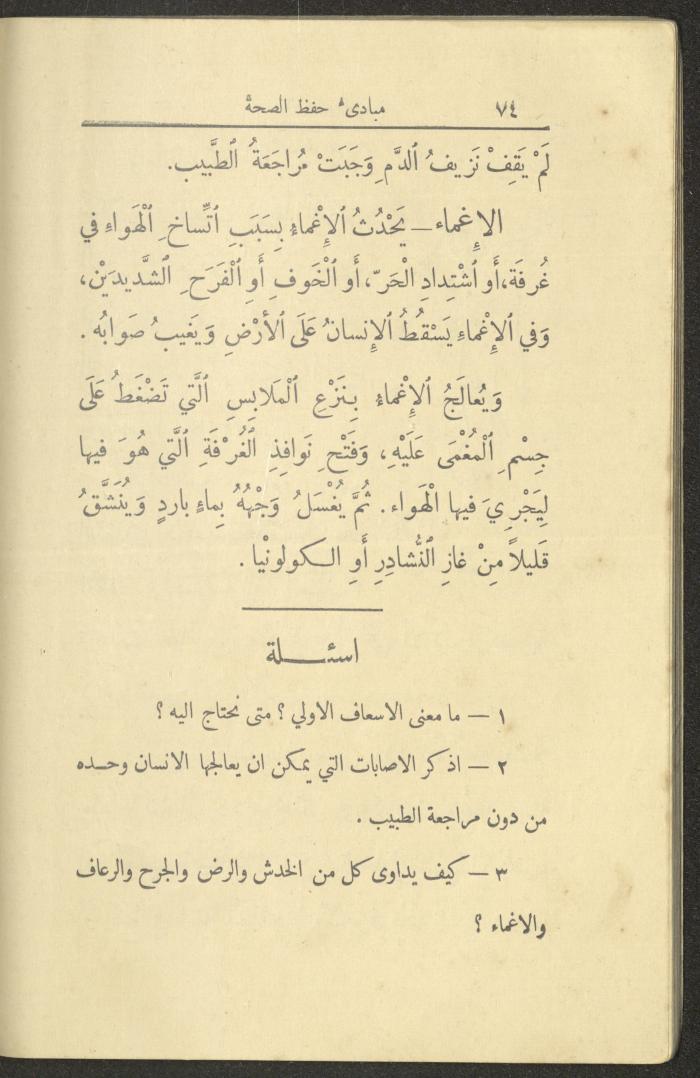 ٧٤ مبادىء حفظ الصحة
لَمْ يَقِفْ نَزِيفُ ٱلدَّمِ وَجَبَتْ مُرَاجَعَةُ ٱلطَّبِيبِ.
الإِغماء — يَحْدُثُ ٱلإِغْماءُ بِسَبَبِ ٱتِّساخِ ٱلْهَواءِ في
غُرفَة، أَو ٱشْتِدادِ الْحَرِّ، أَو ٱلْخَوفِ أَوِ ٱلْفَرَحِ ٱلشَّدِيدَيْن،
وَفي ٱلإِغْماءِ يَسْقُطُ ٱلإِنسانُ عَلَى ٱلأَرْضِ وَيَغيبُ صَوَابُه .
وَيُعالَجُ ٱلإِغْماءُ بِنَزْعِ ٱلْمَلابِسِ ٱلَّتي تَضْغَطُ عَلَى
جِسْمِ ٱلْمُغْمَى عَلَيْهِ، وَفَتْحِ نَوافِذِ ٱلْغُرْفَةِ ٱلَّتي هُوَ فيها
لِيَجْرِيَ فيها ٱلْهَواء . ثُمَّ يُغْسَلُ وَجْهُهُ بِماءٍ بارِدٍ وَيُنَشَّقُ
قَليلاً مِنْ غازِ ٱلنُّشادِرِ أَوِ الكولونْيا .
اسئلة
١ — ما معنى الاسعاف الاولي ؟ متى نحتاج اليه ؟
٢ — اذكر الاصابات التي يمكن ان يعالجها الانسان وحده
من دون مراجعة الطبيب .
٣ — كيف يداوى كل من الخدش والرض والجرح والرعاف
والاغماء ؟